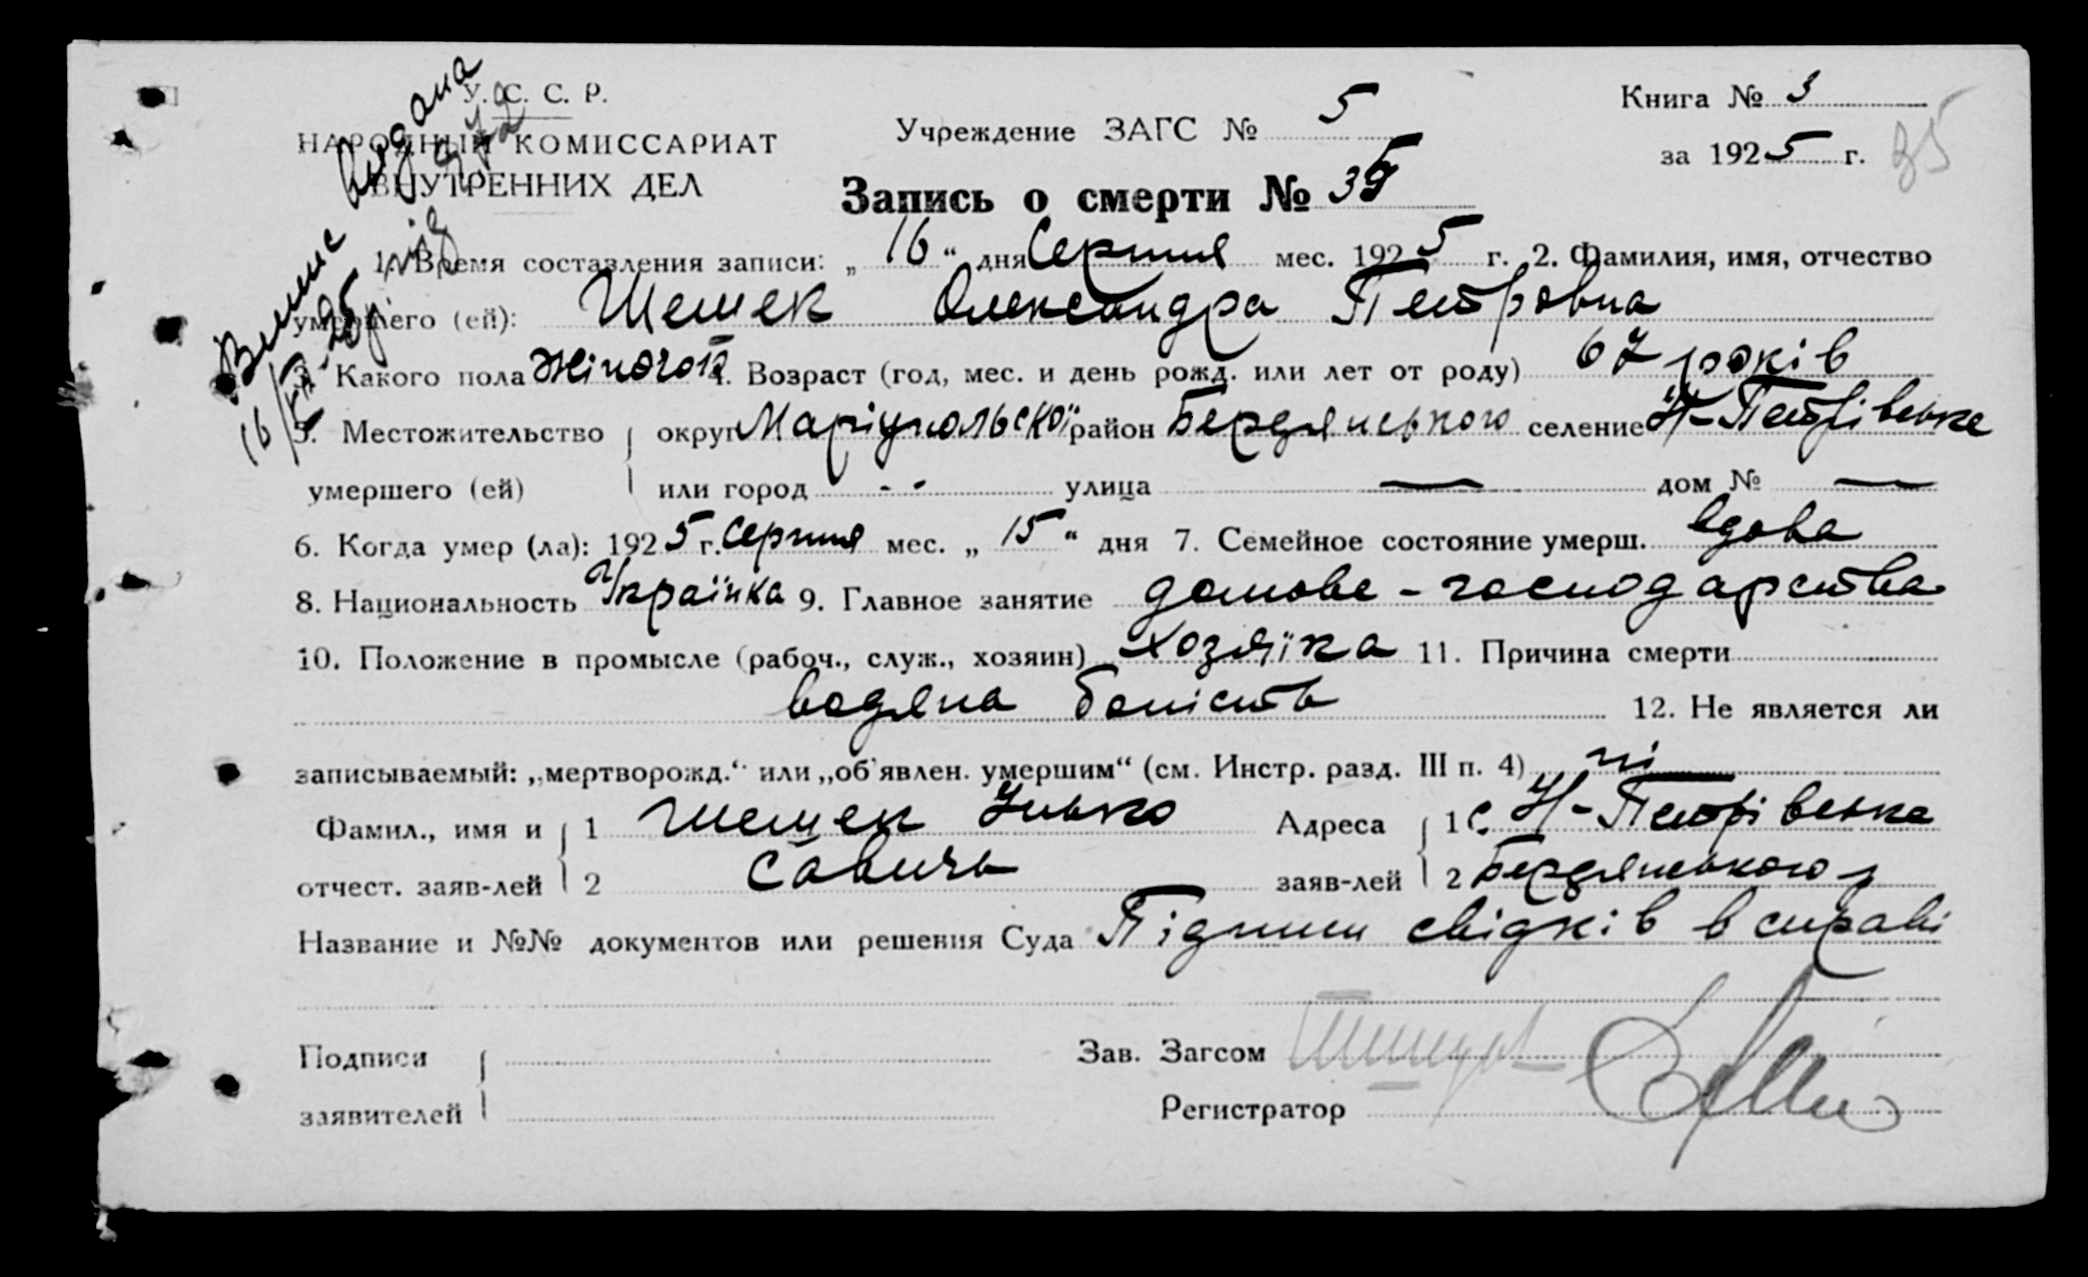 У. С. С. Р.
НАРОДНЫЙ КОМИССАРИАТ
ВНУТРЕННИХ ДЕЛ
Учреждение ЗАГС № 5
Книга № 3
за 1925 г.
35
Запись о смерти № 35
Видана
16/VIII-25р.
1. Время составления записи: „16“ дня Серпня мес. 1925 г. 2. Фамилия, имя, отчество
умершего (ей): Шешек Олександра Петровна
3. Какого пола Жіночой 4. Возраст (год, мес. и день рожд. или лет от роду) 67 років
5. Местожительство округ Маріупольскої район Бердянського селение Н-Петрівська
умершего (ей) или город - - улица — дом № —
6. Когда умер (ла): 1925 г. Серпня мес. „15“ дня 7. Семейное состояние умерш. вдова
8. Национальность Українка 9. Главное занятие домове-господарства
10. Положение в промысле (рабоч., служ., хозяин) хозяїка 11. Причина смерти
водяна болість 12. Не является ли
записываемый: „мертворожд.“ или „об'явлен. умершим“ (см. Инстр. разд. III п. 4) ні
Фамил., имя и 1 Шешек Адреса 1 с. Н-Петрівська
отчест. заяв-лей 2 Савичь заяв-лей 2 Бердянського р
Название и №№ документов или решения Суда Підписи свідків в справі
Подписи Зав. Загсом
заявителей Регистратор